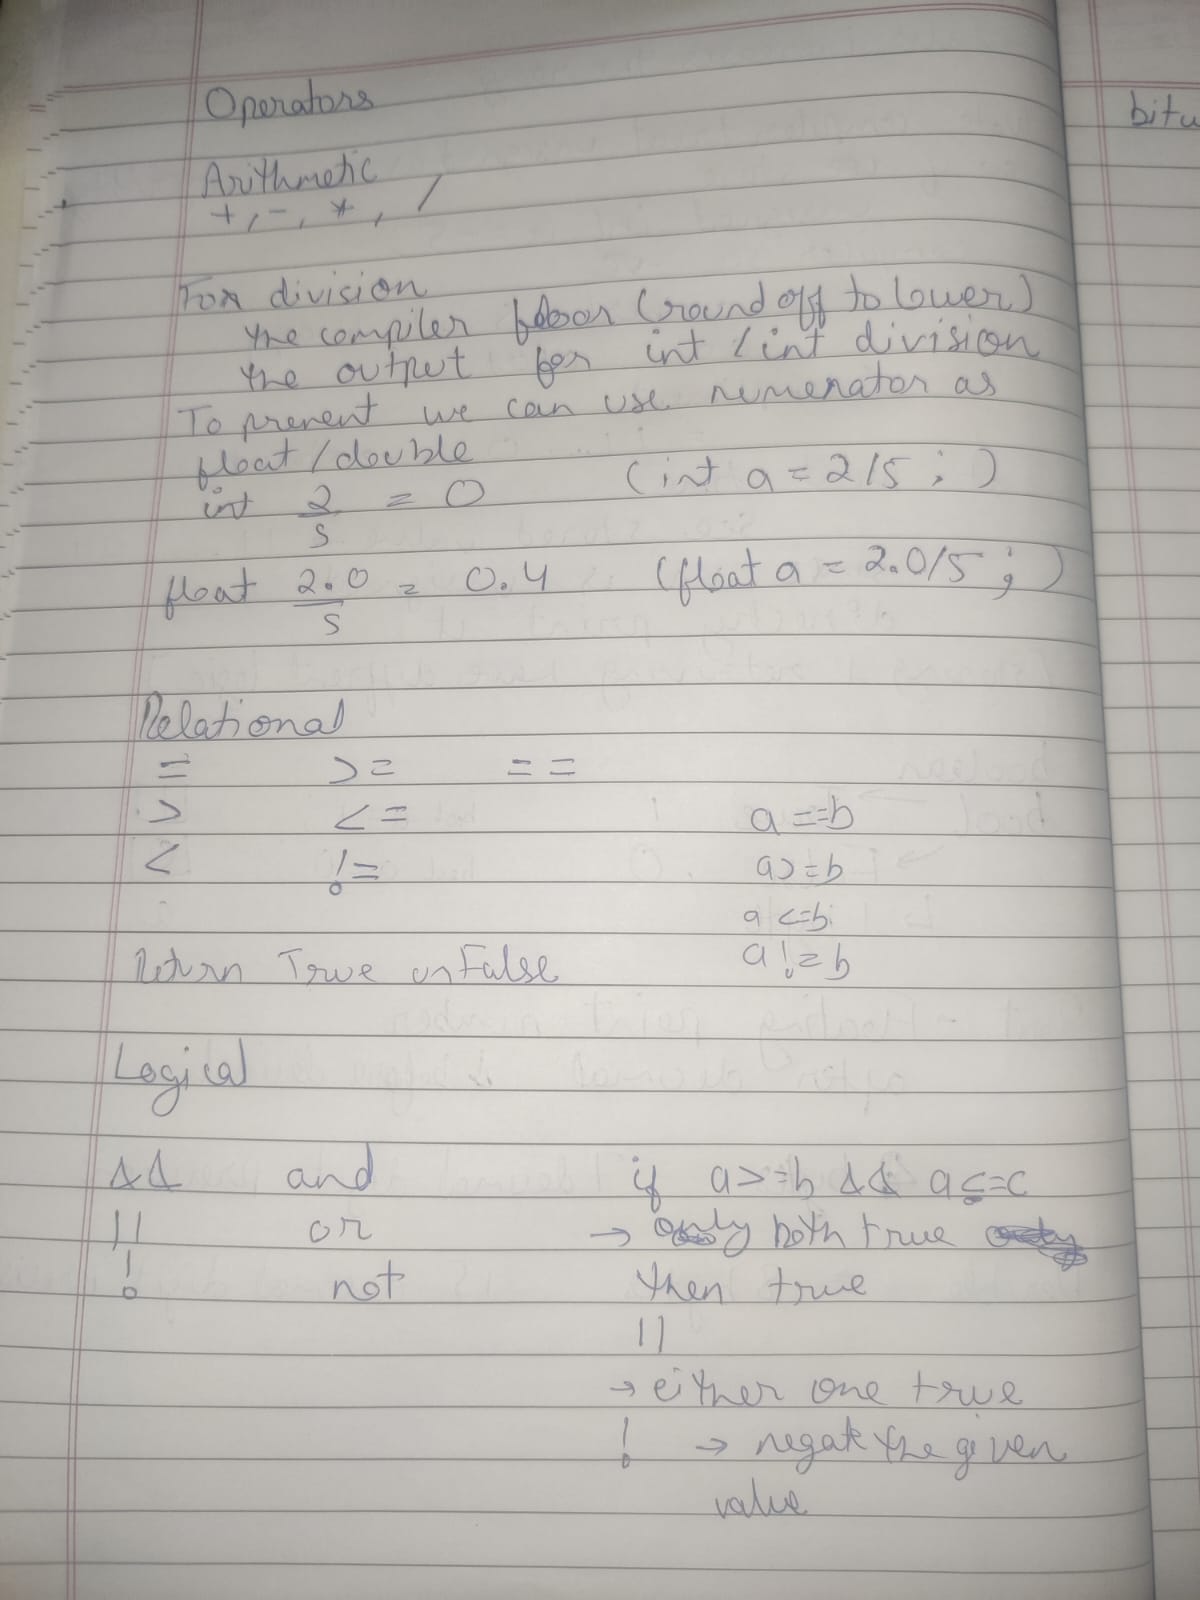 Operators
bitw
Arithmetic
+, -, *, /
For division
the compiler floor (round off to lower)
the output for int / int division
To prevent we can use numerator as
float / double
int 2/5 = 0 (int a = 2/5 ; )
float 2.0/5 = 0.4 (float a = 2.0/5 ; )
Relational
= >= ==
> <= a == b
< != a >= b
a <= b
Return True or False a != b
Logical
&& and if a >= b && a <= c
|| or → only both true
! not then true
||
→ either one true
! → negate the given
value